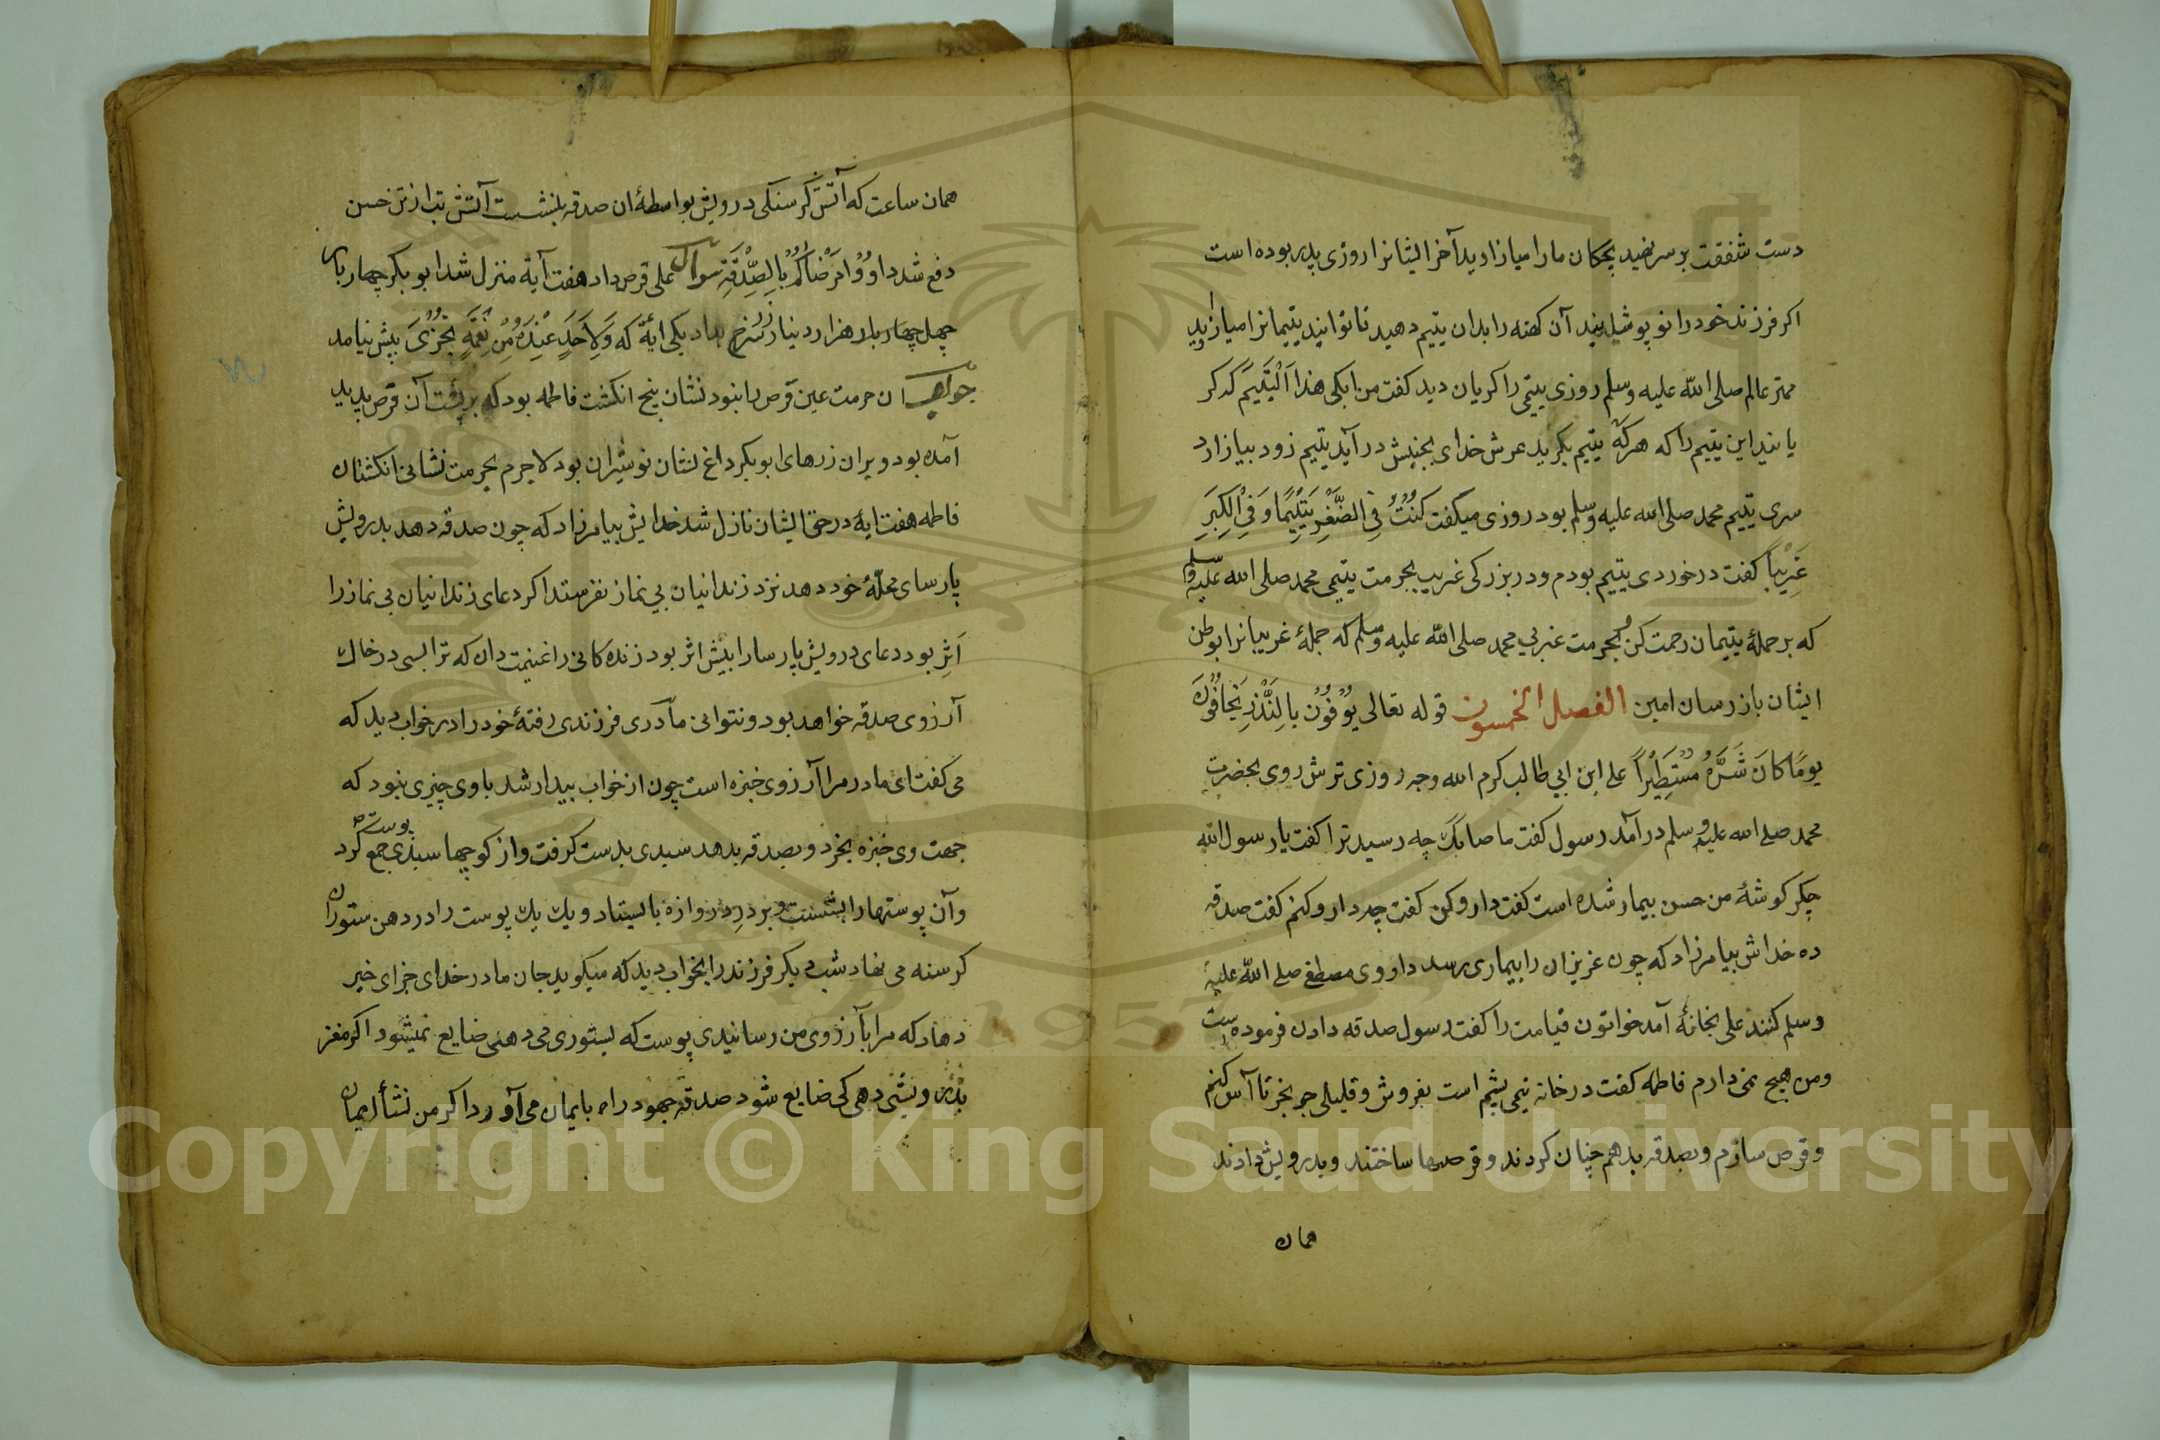 دست شفقت بر سر نهید بچکان مارا میازارید آخر ایشانرا روزی پدر بوده است
اکر فرزند خود را نو پوشانید آن کهنه را بدان یتیم دهید تا توانید یتیمانرا میازارید
مهتر عالم صلی الله علیه وسلم روزی یتیمی را کریان دید کفت من ابکی هذا الْیَتِیمَ که کر
یانید این یتیم را که هرکه یتیم بکرید عرش خدای بجنبش در آید یتیم زود بیازارد
سری یتیم محمد صلی الله علیه وسلم بود روزی میکفت کُنْتُ فِی الصِّغَرِ یَتِیْمًا وَفِی الْکِبَرِ
غَرِیْبًا کفت در خوردی یتیم بودم ودر بزرکی غریب بحرمت یتیمی محمد صلی الله علیه وسلم
که بر جملهٔ یتیمان رحمت کن بحرمت غریبی محمد صلی الله علیه وسلم که جملهٔ غریبانرا بوطن
ایشان باز رسان امین الفصل الخمسون قوله تعالی یُوْفُوْنَ بِالنَّذْرِ وَیَخَافُوْنَ
یومًا کانَ شَرُّهُ مُسْتَطِیْرًا علی ابن ابی طالب کرم الله وجه روزی ترش روی بحضرت
محمد صلی الله علیه وسلم در آمد رسول کفت ما اصابک چه رسید ترا کفت یا رسول الله
جکر کوشهٔ من حسن بیمار شده است کفت دارو کن کفت چه دارو کنم کفت صدقه
ده خداش بیامرزاد که چون عزیزان را بیماری رسد داروی مصطفی صلی الله علیه
وسلم کنند علی بخانهٔ آمد خواتون قیامت را کفت رسول صدقه دادن فرموده است
ومن هیچ نمی دارم فاطمه کفت در خانه نیمی پشم است بفروش وقلیلی جو بخر تا آس کنم
وقرص سازم وبصدقه بدهم چنان کردند وقرصها ساختند وبدرویش دادند
همان
همان ساعت که آتش کرسنکی درویش بواسطهٔ ان صدقه بنشست آتش تب از تن حسن
دفع شد داوُوْا مَرْضَاکُمْ بِالصَّدَقَةِ سوال علی قرص داد هفت آیة منزل شد ابو بکر چهار بار
چهل چهار بار هزار دینار زر سرخ بداد یکی ایة که وَلِاَحَدٍ عِنْدَهُ مِنْ نِعْمَةٍ تُجْزٰیَ پیش نیامد
جواب ان حرمت عین قرص را نبود نشان پنج انکشت فاطمه بود که بر پشت آن قرص پدید
آمده بود وبران زرهای ابو بکر داغ نشان نوشیران بود لاجرم بحرمت نشانی انکشتان
فاطمه هفت ایة در حق ایشان نازل شد خدایش بیامرزاد که چون صدقه دهد بدرویش
پارسای محلهٔ خود دهد نزد زندانیان بی نماز نفرستد اکر دعای زندانیان بی نماز را
اَثر بود دعای درویش پارسا را بیش اثر بود زنده کانی را غنیمت دان که ترا بسی در خاک
آرزوی صدقه خواهد بود ونتوانی مادری فرزندی رفتهٔ خود را در خواب دید که
می کفت ای مادر مرا آرزوی خربزه است چون از خواب بیدار شد باوی چیزی نبود که
جهت وی خربزه بخرد وبصدقه بدهد سبدی بدست کرفت واز کوچها پوست جمع کرد
وآن پوستها را بشست وبر در دروازه بایستاد ویک یک پوست را در دهن ستوران
کرسنه می نهاد شب دیکر فرزند را بخواب دید که میکوید جان مادر خدای جزای خیر
دهاد که مرا بآرزوی من رسانیدی پوست که بستوری می دهی ضایع نمیشود اکر مغز
بدرویشی دهی کی ضایع شود صدقه جهود را به ایمان می آورد اکر من